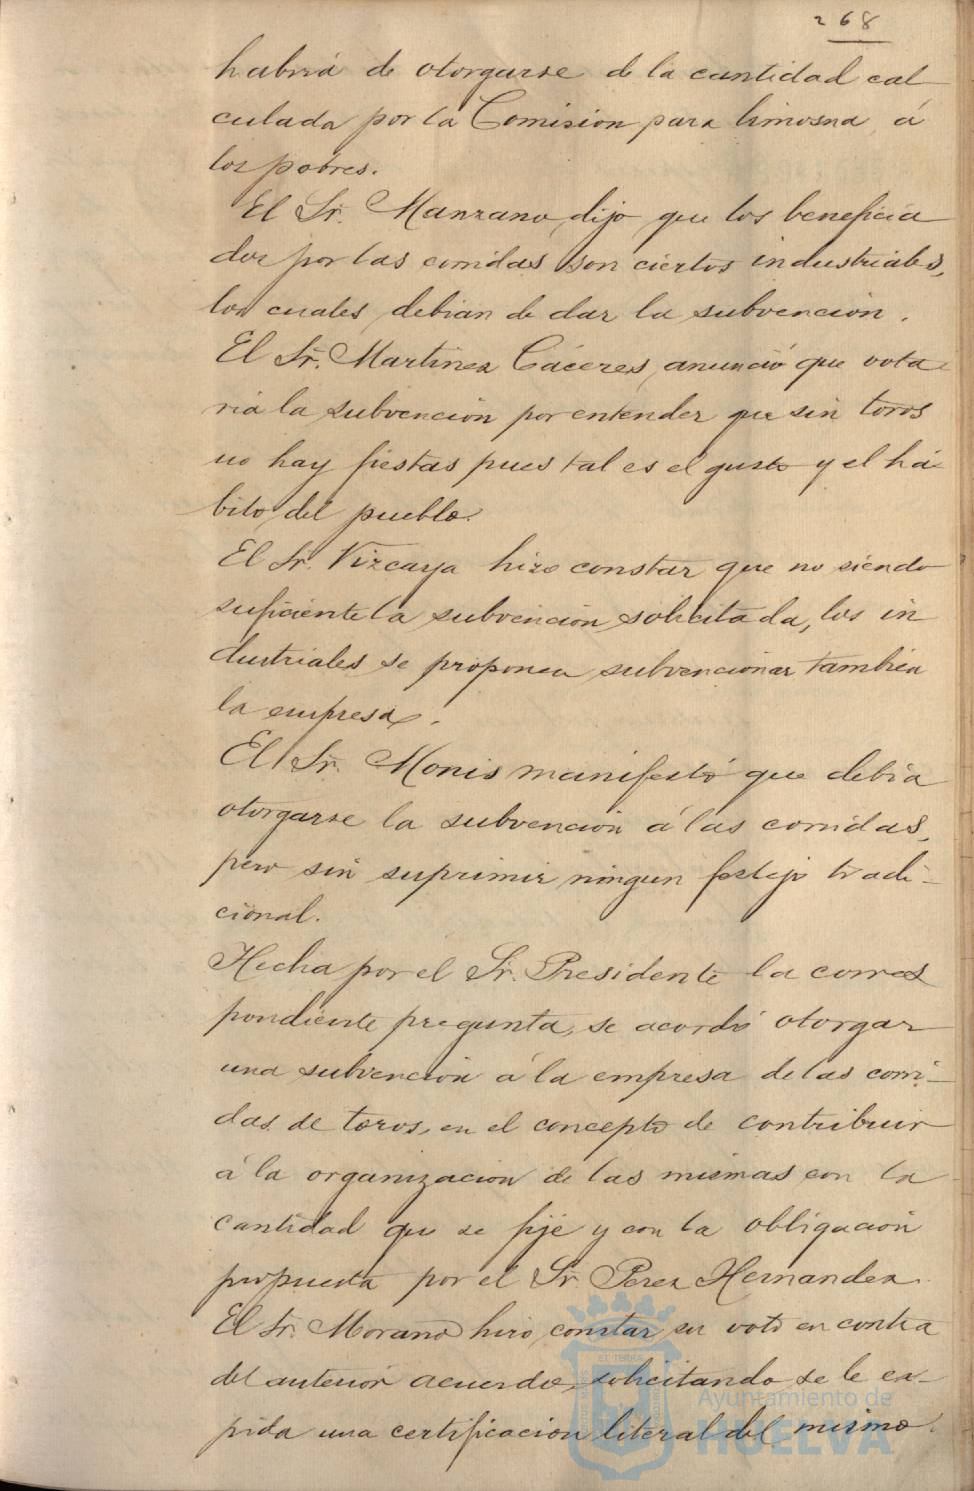 268
habrá de otorgarse de la cantidad cal
culada por la Comision para limosna á
los pobres.
El Sr. Manzano dijo que los beneficia
dos por las corridas son ciertos industriales,
los cuales debian de dar la subvencion.
El Sr. Martinez Cáceres anunció que vota
ria la subvencion por entender que sin toros
no hay fiestas pues tal es el gusto y el há
bito del pueblo.
El Sr. Vizcaya hizo constar que no siendo
suficiente la subvencion solicitada, los in
dustriales se proponen subvencionar tambien
la empresa.
El Sr. Monis manifestó que debia
otorgarse la subvencion á las corridas,
pero sin suprimir ningun festejo tradi-
cional.
Hecha por el Sr. Presidente la corres
pondiente pregunta, se acordó otorgar
una subvencion á la empresa de las corri-
das de toros, en el concepto de contribuir
á la organizacion de las mismas con la
cantidad que se fije y con la obligacion
propuesta por el Sr. Perez Hernandez.
El Sr. Morano hizo constar su voto en contra
del anterior acuerdo, solicitando se le ex-
pida una certificacion literal del mismo.
Ayuntamiento de
HUELVA